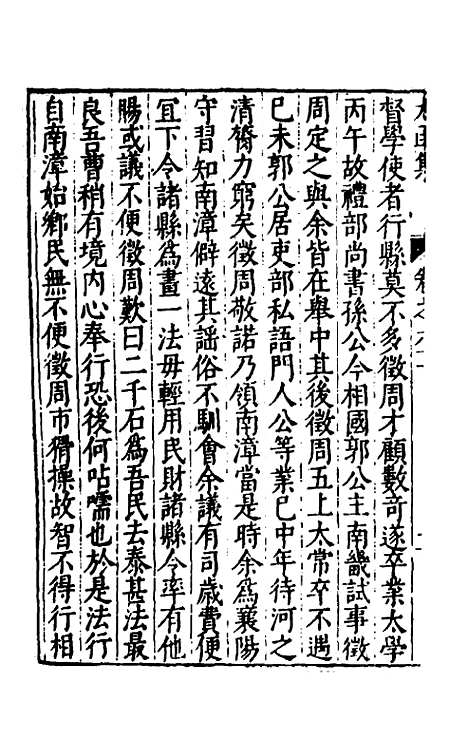 太函集 卷之六十
督學使者行縣莫不多徵周才顧數奇遂卒業太學
丙午故禮部尚書孫公今相國郭公主南畿試事徵
周定之與余皆在舉中其後徵周五上太常卒不遇
巳未郭公居吏部私語門人公等業巳中年待河之
清膂力窮矣徵周敬諾乃領南漳當是時余為襄陽
守習知南漳僻遠其謡俗不馴會余議有司歲費便
宜下令諸縣為畫一法毋輕用民財諸縣令率有他
腸或議不便徵周歎曰二千石為吾民去泰甚法最
良吾曹稍有境内心奉行恐後何呫嚅也於是法行
自南漳始鄉民無不便徵周市猾操故智不得行相